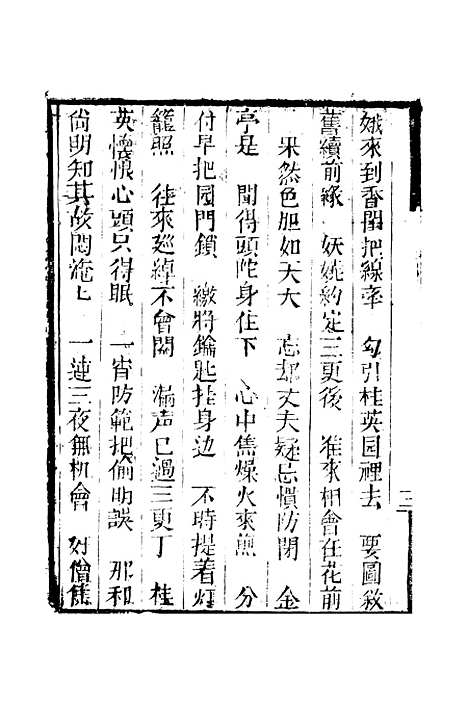 娥來到香閨把線牽　勾引桂英园裡去　要圖敘
舊續前緣　妖娆約定三更後　准來相會在花前
果然色胆如天大　忘却丈夫疑忌慎防閉　金
亭是　聞得頭陀身住下　心中焦燥火來煎　分
付早把园門鎖　繳將鑰匙挂身边　不時提着灯
籠照　往來廵綽不曾閑　漏声已過三更丁　桂
英懷恨心頭只得眠　一宵防範把偷期誤　那和
尚明知其故悶淹七　一連三夜無机會　好僧焦
三